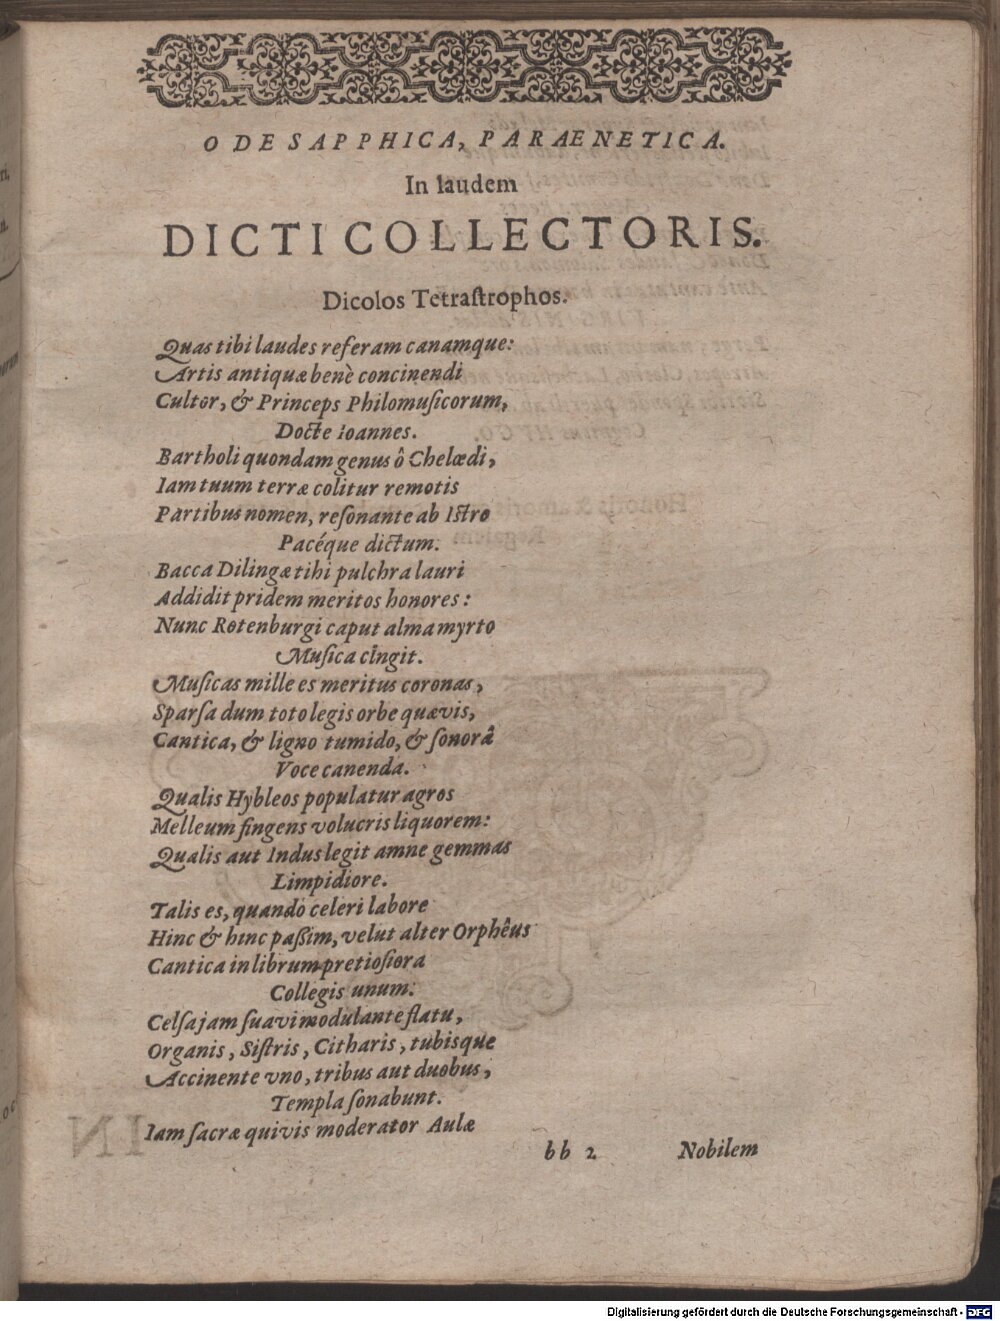 ODE SAPPHICA, PARAENETICA.
In laudem
DICTI COLLECTORIS.
Dicolos Tetraſtrophos.
Quas tibi laudes referam canamque:
Artis antiquæ benè concinendi
Cultor, & Princeps Philomuſicorum,
Docte Ioannes.
Bartholi quondam genus ô Chelædi,
Iam tuum terræ colitur remotis
Partibus nomen, reſonante ab Iſtro
Pacéque dictum.
Bacca Dilingæ tihi pulchra lauri
Addidit pridem meritos honores:
Nunc Rotenburgi caput alma myrto
Muſica cingit.
Muſicas mille es meritus coronas,
Sparſa dum toto legis orbe quævis,
Cantica, & ligno tumido, & ſonorâ
Voce canenda.
Qualis Hybleos populatur agros
Melleum fingens volucris liquorem:
Qualis aut Indus legit amne gemmas
Limpidiore.
Talis es, quando celeri labore
Hinc & hinc paßim, velut alter Orphêus
Cantica in librum pretioſiora
Collegis unum.
Celſa jam ſuavi modulante flatu,
Organis, Siſtris, Citharis, tubisque
Accinente vno, tribus aut duobus,
Templa ſonabunt.
Iam ſacræ quivis moderator Aulæ
bb 2 Nobilem
Digitalisierung gefördert durch die Deutsche Forschungsgemeinschaft - DFG